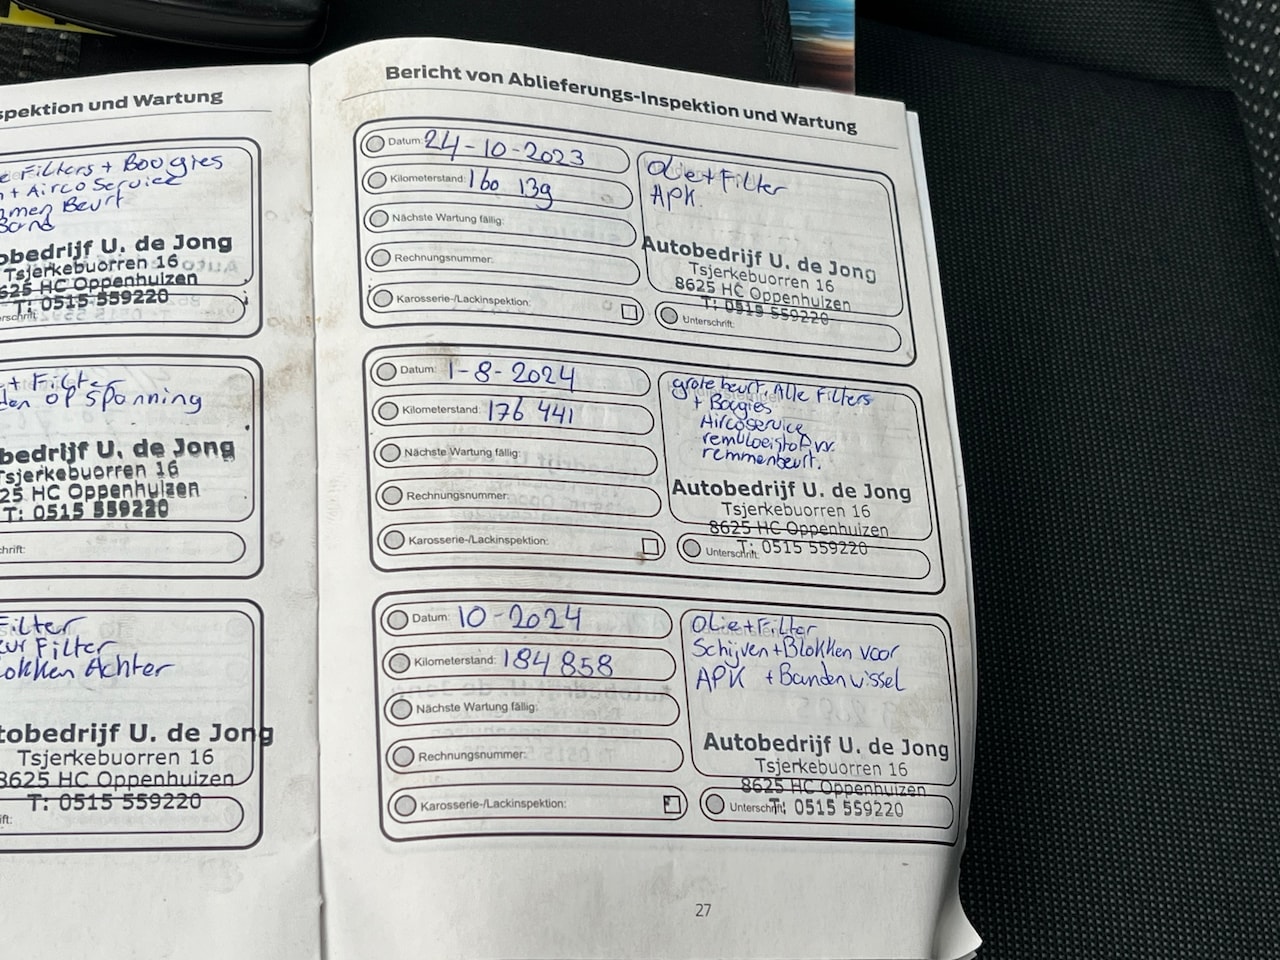 spektion und Wartung
Filters + Bougies
+ Airco Service
Beurt
Band
obedrijf U. de Jong
Tsjerkebuorren 16
625 HC Oppenhuizen
T: 0515 559220
+ Filter
op spanning
bedrijf U. de Jong
Tsjerkebuorren 16
25 HC Oppenhuizen
T: 0515 559220
chrift:
Filter
eur Filter
okken Achter
tobedrijf U. de Jong
Tsjerkebuorren 16
8625 HC Oppenhuizen
T: 0515 559220
ift:
Bericht von Ablieferungs-Inspektion und Wartung
Datum: 24-10-2023
Kilometerstand: 160 139
Nächste Wartung fällig:
Rechnungsnummer:
Karosserie-/Lackinspektion:
Olie + Filter
APK.
Autobedrijf U. de Jong
Tsjerkebuorren 16
8625 HC Oppenhuizen
T: 0515 559220
Unterschrift:
Datum: 1-8-2024
Kilometerstand: 176 441
Nächste Wartung fällig:
Rechnungsnummer:
Karosserie-/Lackinspektion:
grote beurt. Alle Filters
+ Bougies
Aircoservice
remvloeistof vv.
remmenbeurt.
Autobedrijf U. de Jong
Tsjerkebuorren 16
8625 HC Oppenhuizen
T: 0515 559220
Unterschrift:
Datum: 10-2024
Kilometerstand: 184 858
Nächste Wartung fällig:
Rechnungsnummer:
Karosserie-/Lackinspektion:
Olie + Filter
Schijven + Blokken voor
APK + Bandenwissel
Autobedrijf U. de Jong
Tsjerkebuorren 16
8625 HC Oppenhuizen
T: 0515 559220
Unterschrift:
27